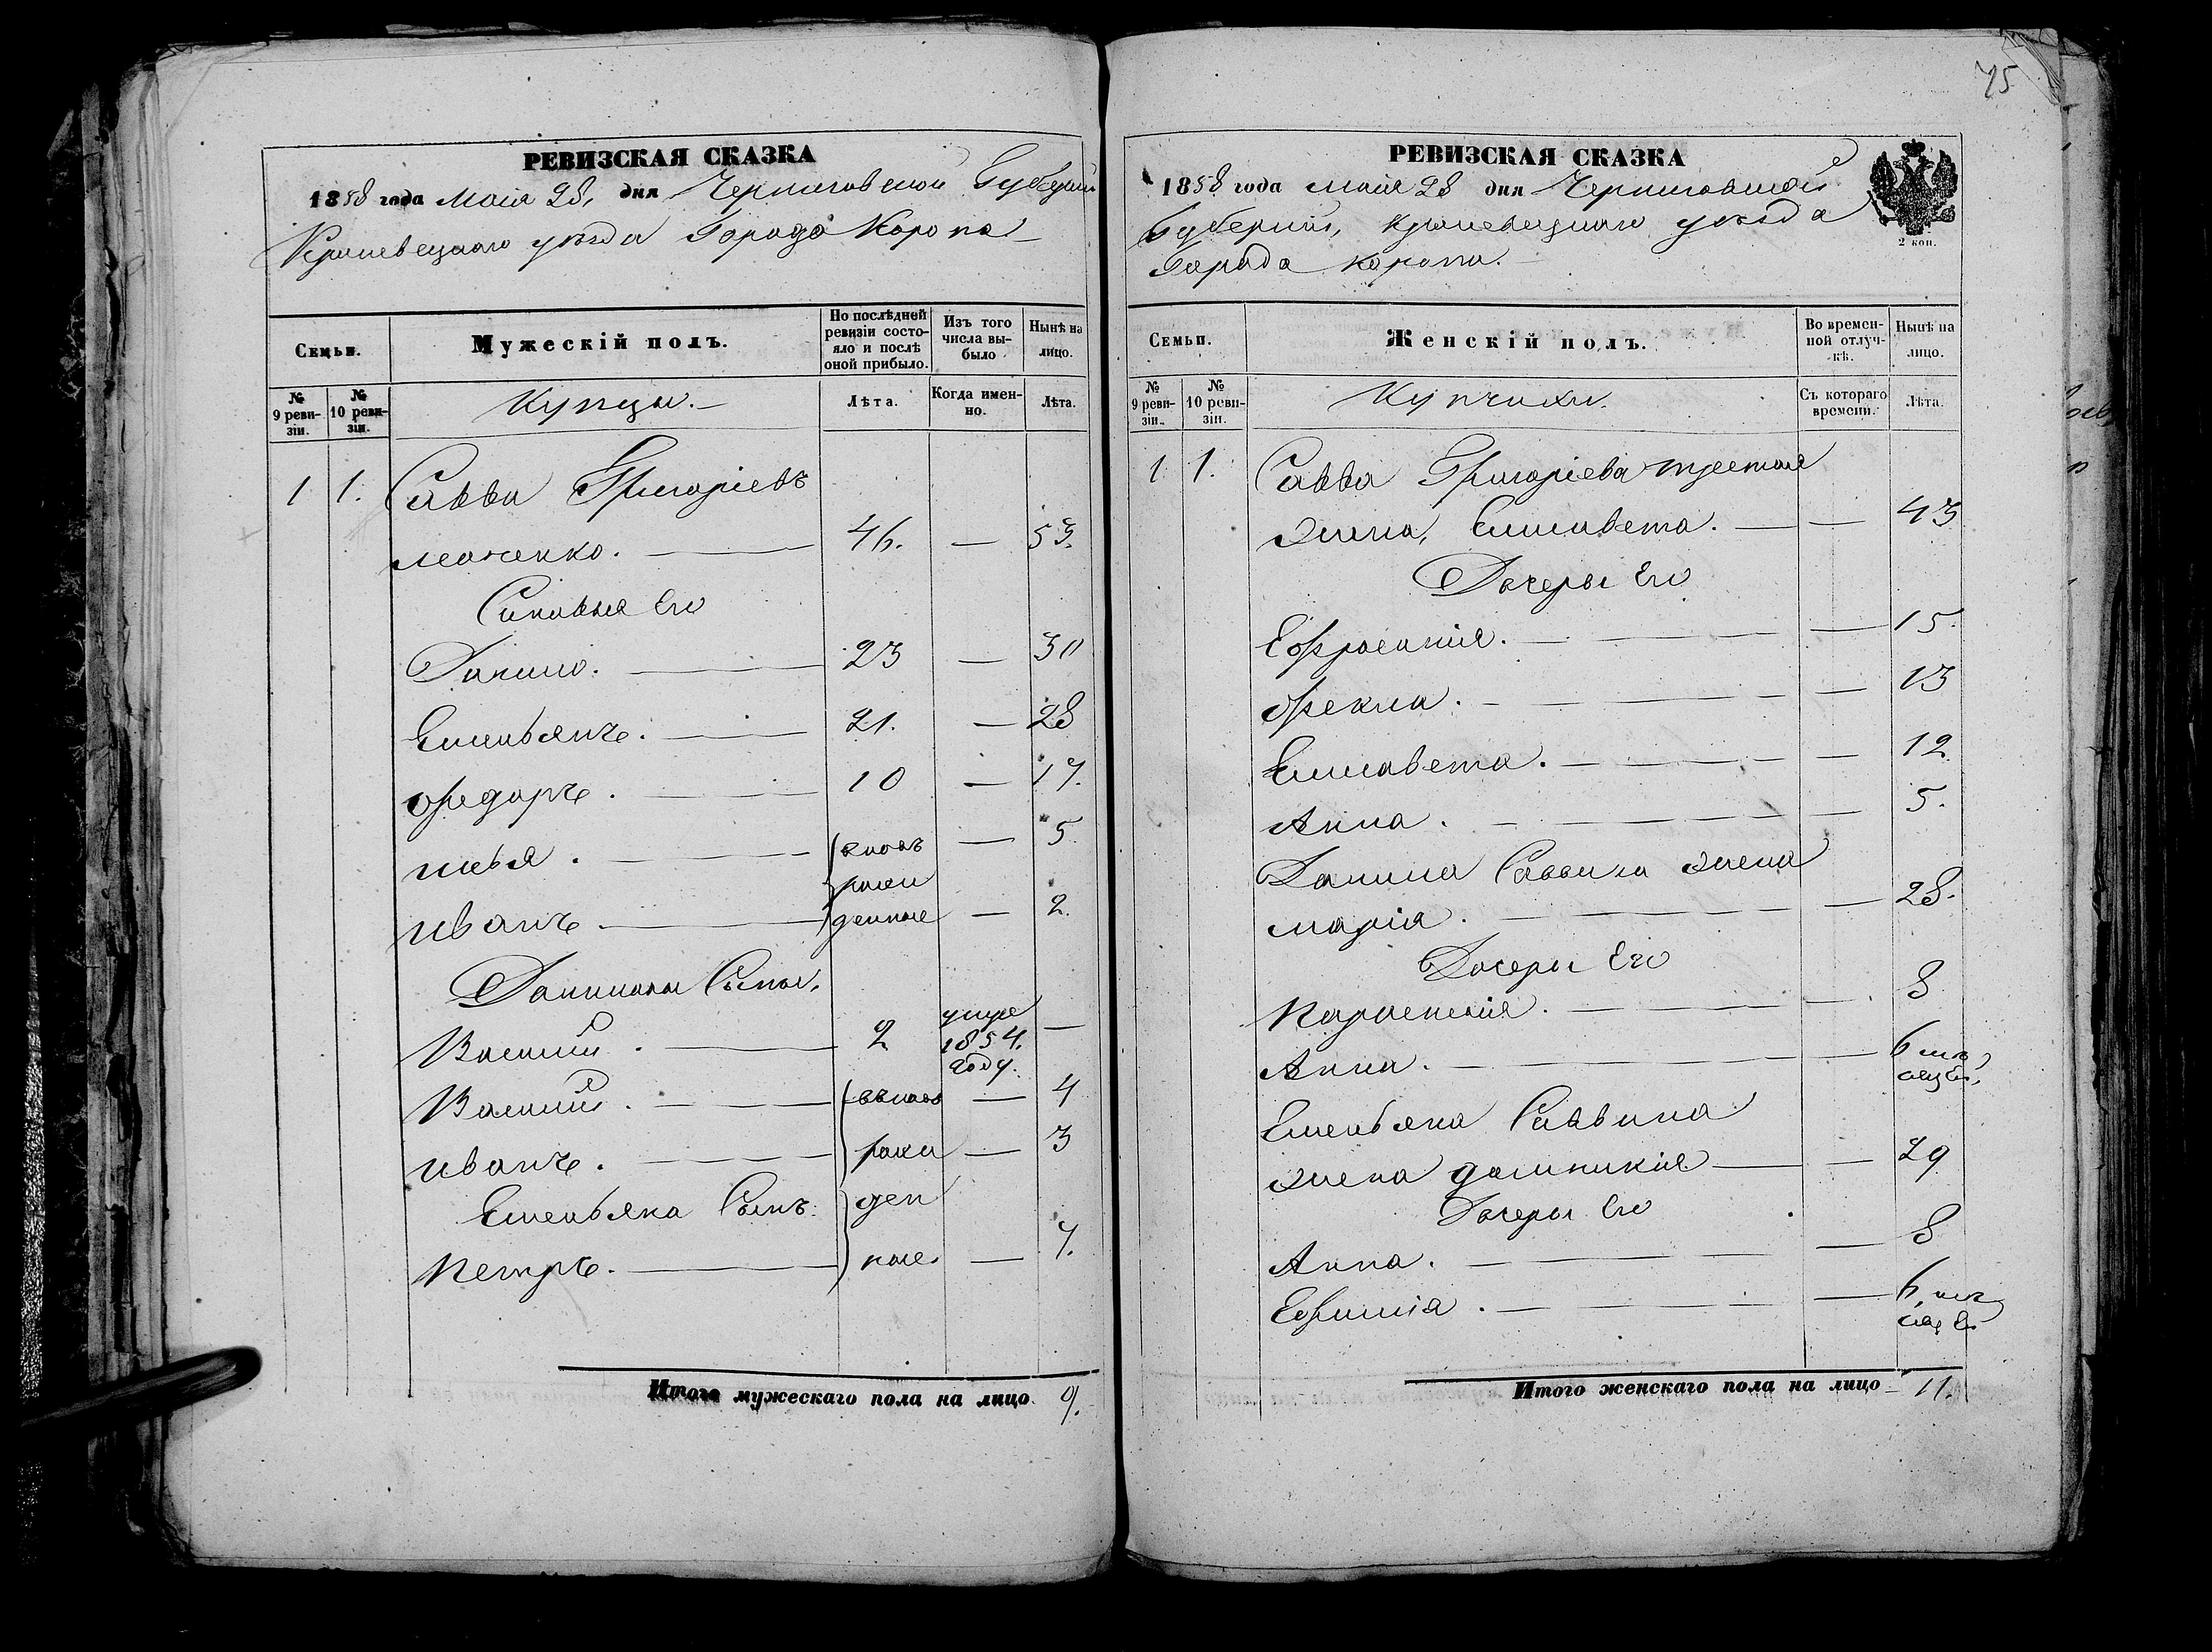 75
РЕВИЗСКАЯ СКАЗКА
1858 года Маія 28, дня Черниговской Губерніи
Кролевецкаго уѣзда Города Коропа
Семьи.
Мужескій полъ.
По послѣдней ревизіи состояло и послѣ оной прибыло.
Изъ того числа выбыло
Нынѣ на лицо.
№ 9 ревизіи.
№ 10 ревизіи.
Купцы.
Лѣта.
Когда именно.
Лѣта.
1 1. Савва Григоріевъ
46. — 53.
Сыновья Его
Данило. 23 — 30
Емельянъ. 21. — 28
Федоръ. 10 — 17.
Илья. вновь — 5
рож
Иванъ. денные — 2.
Данила Сыны,
Василій. 2 умре 1854. году. —
Василій. вновь — 4
Иванъ. рож — 3
Емельяна Сынъ. ден
Петръ. ные — 7.
Итого мужескаго пола на лицо 9.
РЕВИЗСКАЯ СКАЗКА
1858 года Маія 28 дня Черниговской
Губерніи, Кролевецкаго уѣзда
Города Коропа.
2 коп.
Семьи.
Женскій полъ.
Во временной отлучкѣ.
Нынѣ на лицо.
№ 9 ревизіи.
№ 10 ревизіи.
Купчихи.
Съ котораго времени.
Лѣта.
1 1. Савва Григоріева третая
жена, Елисавета. — 43
Дочеры Его
Ефросинія. — 15.
Фекла. — 13
Елисавета. — 12
Анна. — 5.
Данила Саввина жена
Марія. — 28.
Дочеры Его
Параскевія. — 8
Анна. — 6 мѣсяцей,
Емельяна Саввина
жена Домникія — 29
Дочеры Его
Анна. — 8
Ефимія. — 6 мѣсяцей
Итого женскаго пола на лицо 11.